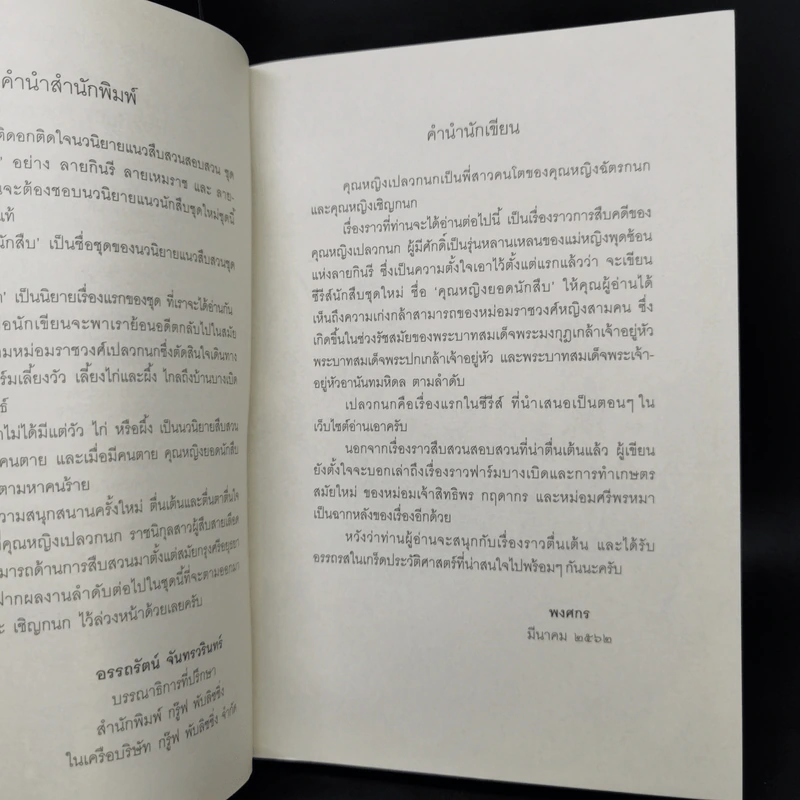 คำนำสำนักพิมพ์
ติดอกติดใจนวนิยายแนวสืบสวนสอบสวน ชุด
' อย่าง ลายกินรี ลายเหมราช และ ลาย-
นจะต้องชอบนวนิยายแนวนักสืบชุดใหม่ชุดนี้
นักสืบ' เป็นชื่อชุดของนวนิยายแนวสืบสวนชุด
' เป็นนิยายเรื่องแรกของชุด ที่เราจะได้อ่านกัน
อนักเขียนจะพาเราย้อนอดีตกลับไปในสมัย
มหม่อมราชวงศ์เปลวกนกซึ่งตัดสินใจเดินทาง
ร์มเลี้ยงวัว เลี้ยงไก่และผึ้ง ไกลถึงบ้านบางเบิด
ไม่ได้มีแต่วัว ไก่ หรือผึ้ง เป็นนวนิยายสืบสวน
คนตาย และเมื่อมีคนตาย คุณหญิงยอดนักสืบ
ตามหาคนร้าย
วามสนุกสนานครั้งใหม่ ตื่นเต้นและตื่นตาตื่นใจ
คุณหญิงเปลวกนก ราชนิกุลสาวผู้สืบสายเลือด
มารถด้านการสืบสวนมาตั้งแต่สมัยกรุงศรีอยุธยา
ฝากผลงานลำดับต่อไปในชุดนี้ที่จะตามออกมา
ะ เชิญกนก ไว้ล่วงหน้าด้วยเลยครับ
อรรถรัตน์ จันทรวรินทร์
บรรณาธิการที่ปรึกษา
สำนักพิมพ์ กรู๊ฟ พับลิชชิ่ง
ในเครือบริษัท กรู๊ฟ พับลิชชิ่ง จำกัด
คำนำนักเขียน
คุณหญิงเปลวกนกเป็นพี่สาวคนโตของคุณหญิงฉัตรกนก
และคุณหญิงเชิญกนก
เรื่องราวที่ท่านจะได้อ่านต่อไปนี้ เป็นเรื่องราวการสืบคดีของ
คุณหญิงเปลวกนก ผู้มีศักดิ์เป็นรุ่นหลานเหลนของแม่หญิงพุดซ้อน
แห่งลายกินรี ซึ่งเป็นความตั้งใจเอาไว้ตั้งแต่แรกแล้วว่า จะเขียน
ซีรีส์นักสืบชุดใหม่ ชื่อ 'คุณหญิงยอดนักสืบ' ให้คุณผู้อ่านได้
เห็นถึงความเก่งกล้าสามารถของหม่อมราชวงศ์หญิงสามคน ซึ่ง
เกิดขึ้นในช่วงรัชสมัยของพระบาทสมเด็จพระมงกุฎเกล้าเจ้าอยู่หัว
พระบาทสมเด็จพระปกเกล้าเจ้าอยู่หัว และพระบาทสมเด็จพระเจ้า-
อยู่หัวอานันทมหิดล ตามลำดับ
เปลวกนกคือเรื่องแรกในซีรีส์ ที่นำเสนอเป็นตอนๆ ใน
เว็บไซต์อ่านเอาครับ
นอกจากเรื่องราวสืบสวนสอบสวนที่น่าตื่นเต้นแล้ว ผู้เขียน
ยังตั้งใจจะบอกเล่าถึงเรื่องราวฟาร์มบางเบิดและการทำเกษตร
สมัยใหม่ ของหม่อมเจ้าสิทธิพร กฤดากร และหม่อมศรีพรหมา
เป็นฉากหลังของเรื่องอีกด้วย
หวังว่าท่านผู้อ่านจะสนุกกับเรื่องราวตื่นเต้น และได้รับ
อรรถรสในเกร็ดประวัติศาสตร์ที่น่าสนใจไปพร้อมๆ กันนะครับ
พงศกร
มีนาคม ๒๕๖๒